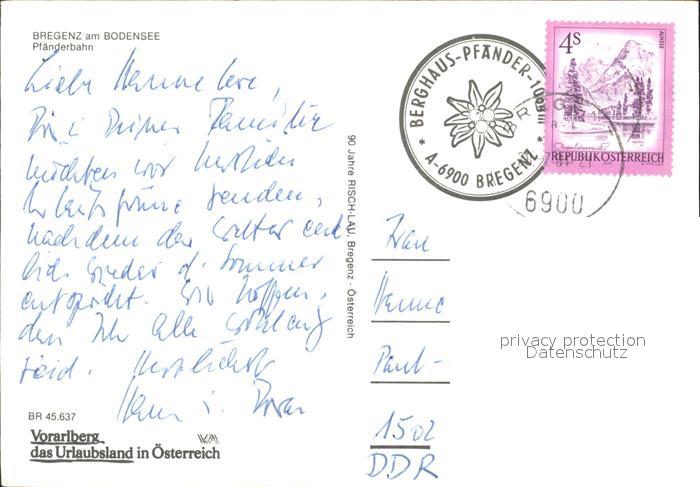 BREGENZ am BODENSEE
Pfänderbahn
Liebe Hannelore,
Dir i Deiner Familie
möchten wir herzliche
Urlaubsgrüße senden,
nachdem das Wetter end
lich wieder d. Sommer
entspricht. Wir hoffen,
daß Ihr alle wohlauf
seid. Herzlichst
BR 45.637
Vorarlberg
das Urlaubsland in Österreich
90 Jahre RISCH-LAU, Bregenz - Österreich
BERGHAUS-PFÄNDER-1063m
* A-6900 BREGENZ *
4S
ALMSEE
REPUBLIK ÖSTERREICH
6900
Frau
Hanne
Paul-
1502
DDR
privacy protection
Datenschutz